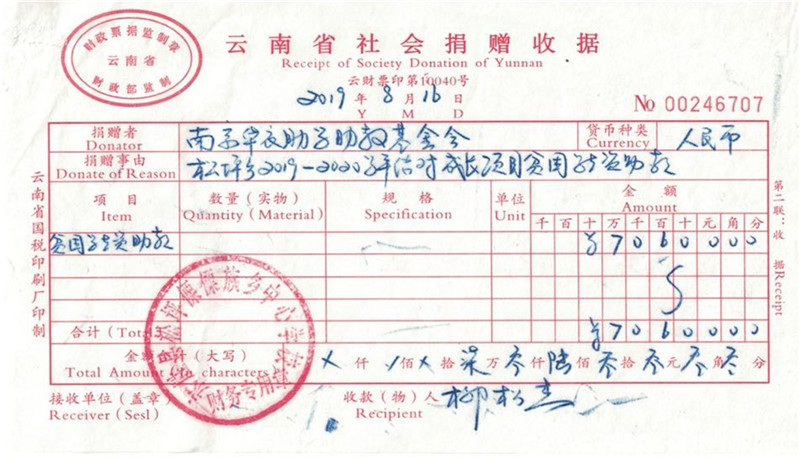 财政票据监制章
云南省
财政部监制
云南省社会捐赠收据
Receipt of Society Donation of Yunnan
云财票印第10040号
2019 年 8 月 16 日
Y M D
No 00246707
捐赠者 南京卓衣助学助教基金会 货币种类 人民币
Donator Currency
捐赠事由 松坪乡2019-2020学年结对成长项目贫困学生资助款
Donate of Reason
项目 数量(实物) 规格 单位 金额
Item Quantity (Material) Specification Unit Amount
千 百 十 万 千 百 十 元 角 分
贫困学生资助款 ¥ 7 0 6 0 0 0 0
合计(Total) ¥ 7 0 6 0 0 0 0
(大写) 仟 佰 拾 柒 万 仟 陆 佰 拾 元 角 分
Total Amount characters
接收单位(盖章) 收款(物)人 柳松杰
Receiver (Sesl) Recipient
坪傈僳族乡中心学校
财务专用章
云南省国税印刷厂印制
第二联:收据 Receipt